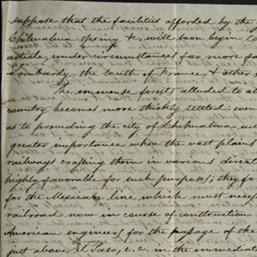 suppose that the facilities afforded by the
Chihuahua
article, under circumstances far more fa
Lombardy, the South of France, & other
The immense forest alluded to a
country becomes more thickly settled; even
as to providing the city of Chihuahua, wi
greater importance when the vast plains
railways crossing them in various direct
highly favorable for such purpose; they fo
for the Mexican line which must neces
railroad now in course of construction
American engineers for the passage of the
just above El Paso, i.e. in the immediat